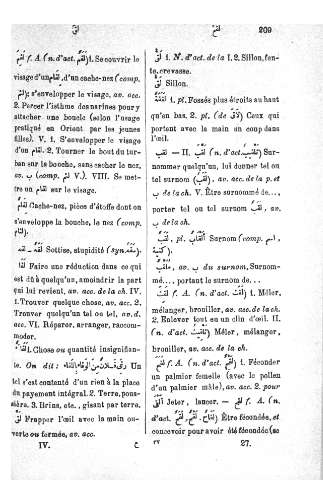 لق
لقح
209
لَفَمَ f. A. (n. d'act. لَفْم) 1. Se couvrir le
visage d'un لِفَام, d'un cache-nez (comp.
لثم); s'envelopper le visage, av. acc.
2. Percer l'isthme des narines pour y
attacher une boucle (selon l'usage
pratiqué en Orient par les jeunes
filles). V. 1. S'envelopper le visage
d'un لفام. 2. Tourner le bout du tur-
ban sur la bouche, sans cacher le nez,
av. ب (comp. لثم V.). VIII. Se met-
tre un لفام sur le visage.
لِفَام Cache-nez, pièce d'étoffe dont on
s'enveloppe la bouche, le nez (comp.
لثام).
Sottise, stupidité (syn.
لفا Faire une réduction dans ce qui
est dû à quelqu'un, amoindrir la part
qui lui revient, av. acc. de la ch. IV.
1. Trouver quelque chose, av. acc. 2.
Trouver quelqu'un tel ou tel, av. d.
acc. VI. Réparer, arranger, raccom-
moder.
لَفَاء 1. Chose ou quantité insignifian-
te. On dit: Un
tel s'est contenté d'un rien à la place
du payement intégral. 2. Terre, pous-
sière. 3. Brins, etc., gisant par terre.
لَقَّ Frapper l'œil avec la main ou-
verte ou fermée, av. acc.
IV.
لَقّ 1. N. d'act. de la I. 2. Sillon, fen-
te, crevasse.
لق Sillon.
1. pl. Fossés plus étroits au haut
qu'en bas. 2. pl. (de لاق) Ceux qui
portent avec la main un coup dans
l'œil.
لقب — II. لَقَّبَ (n. d'act. تلقيب) Sur-
nommer quelqu'un, lui donner tel ou
tel surnom (لقب), av. acc. de la p. et
ب de la ch. V. Être surnommé de...,
porter tel ou tel surnom لقب, av.
ب de la ch.
لَقَب, pl. أَلْقَاب Surnom (comp. اسم,
كنية).
مُلَقَّب, av. ب du surnom, Surnom-
mé..., portant le surnom de...
لقث f. A. (n. d'act. لقث) 1. Mêler,
mélanger, brouiller, av. acc. de la ch.
2. Enlever tout en un clin d'œil. II.
(n. d'act. تلقيث) Mêler, mélanger,
brouiller, av. acc. de la ch.
لَقَحَ f. A. (n. d'act. لقح) 1. Féconder
un palmier femelle (avec le pollen
d'un palmier mâle), av. acc. 2. pour
القى Jeter, lancer. — لَقِحَ f. A. (n.
d'act. لقح, لقح, لقاح) Être fécondée, et
concevoir pour avoir été fécondée (se
27.